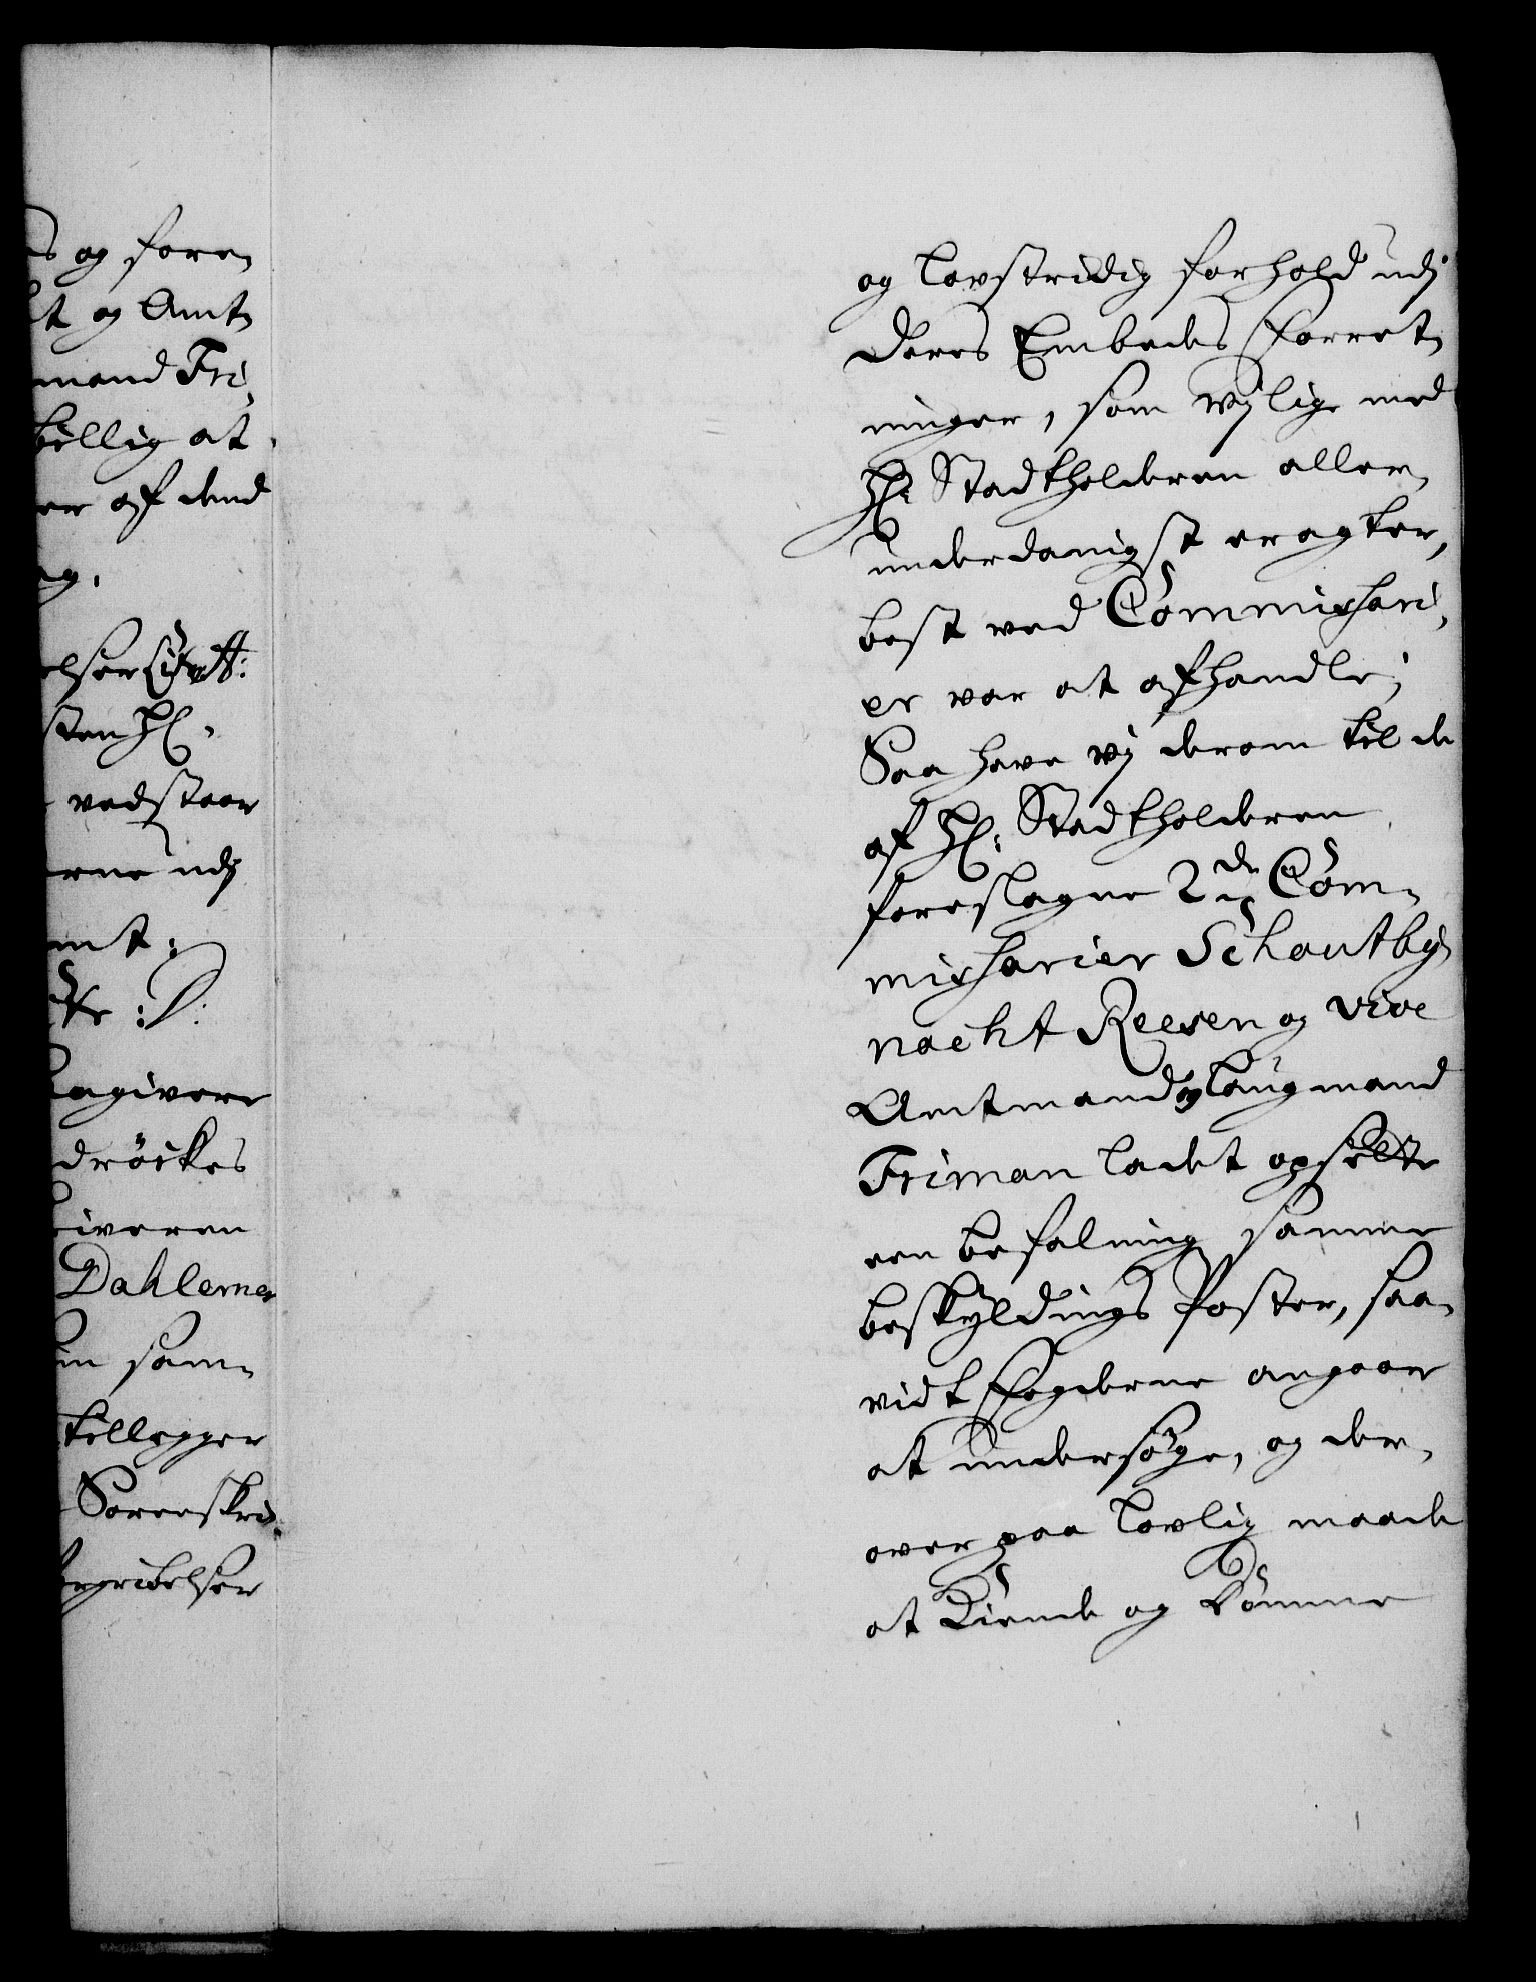 og foren
og Amt
mand Fri,
billig at
er af dend
elser
vedstaar
erne udj
mt:
agivere
drückes
iveren
Dahlemer
m sam-
tillegger
Sorenskri
griebelser
og lovstridig forhold udj
deres Embedes forret,
ninger, som vj lige med
H: Stadtholderen aller,
underdanigst eragter,
best ved Commishari,
er var at afhandle;
Saa have vj derom til de
af H: Stadtholderen
foreslagne 2de Com,
misharier Schoutby
nacht Reesen og vice
Amtmand og Laugmand
Friman ladet opsette
een befalning samme
beskyldings Poster, saa,
vidt fogderne angaar
at undersøge, og der,
over paa lovlig maade
at Kiende og dømme